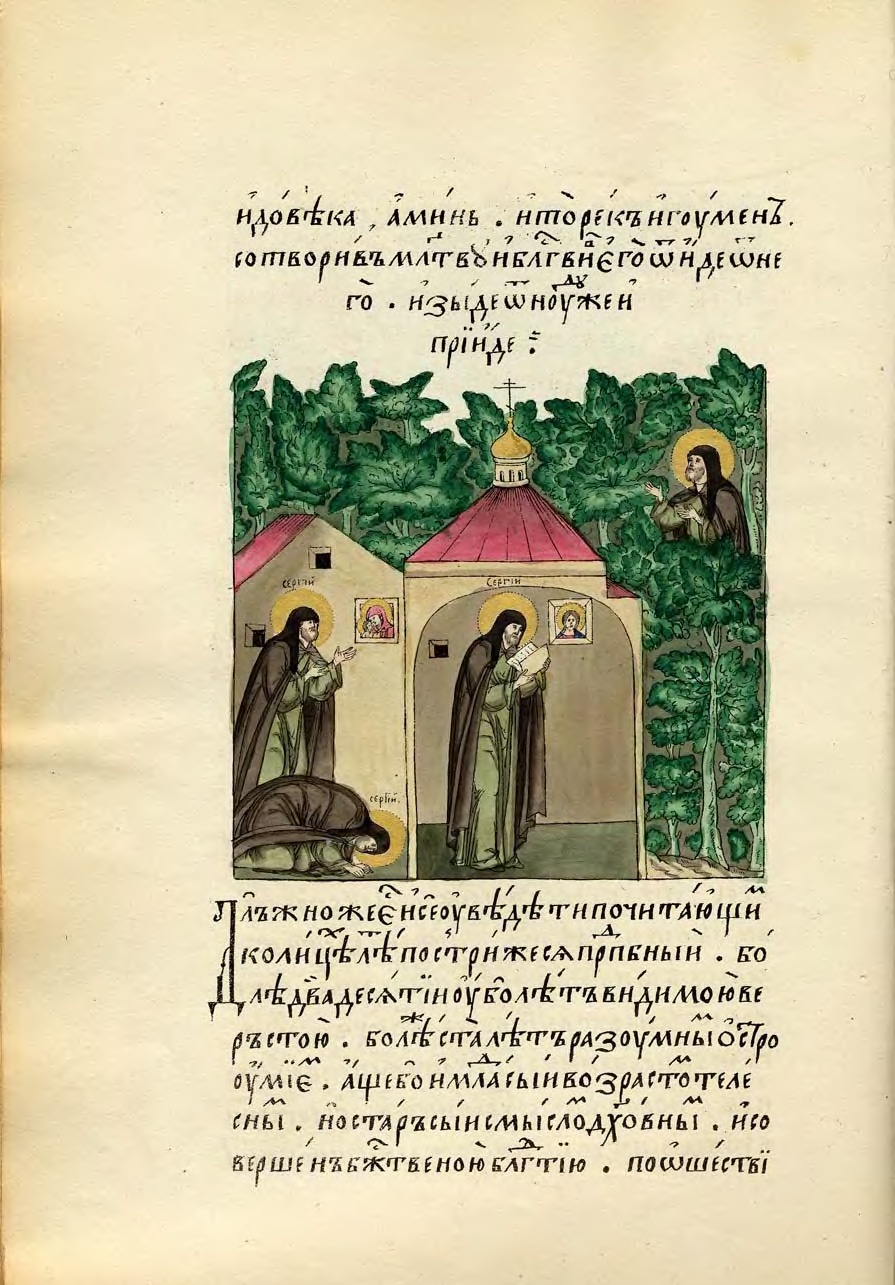 и до вѣка , аминь . и то рекъ игоуменъ .
сотворивъ млтвꙋ и блгви єго ѿиде ѿне
го . изыде ѿноудоу же и
прїиде ⁘
сергїй
Сергїи
сергїй.
Длъжно же єсть и се оувѣдѣти почитающим
колицѣх лѣт пострижеся прпдбный . бо
лѣ двадесятїи оубо лѣтъ видимою ве
рьстою . болѣ же ста лѣтъ разоумным остро
оумїємъ . аще бо и младъ сый возрастом теле
сным . но старъ сый смысломъ дховным . и со
вершенъ бжтвеною блгдтїю . по ѿшествї